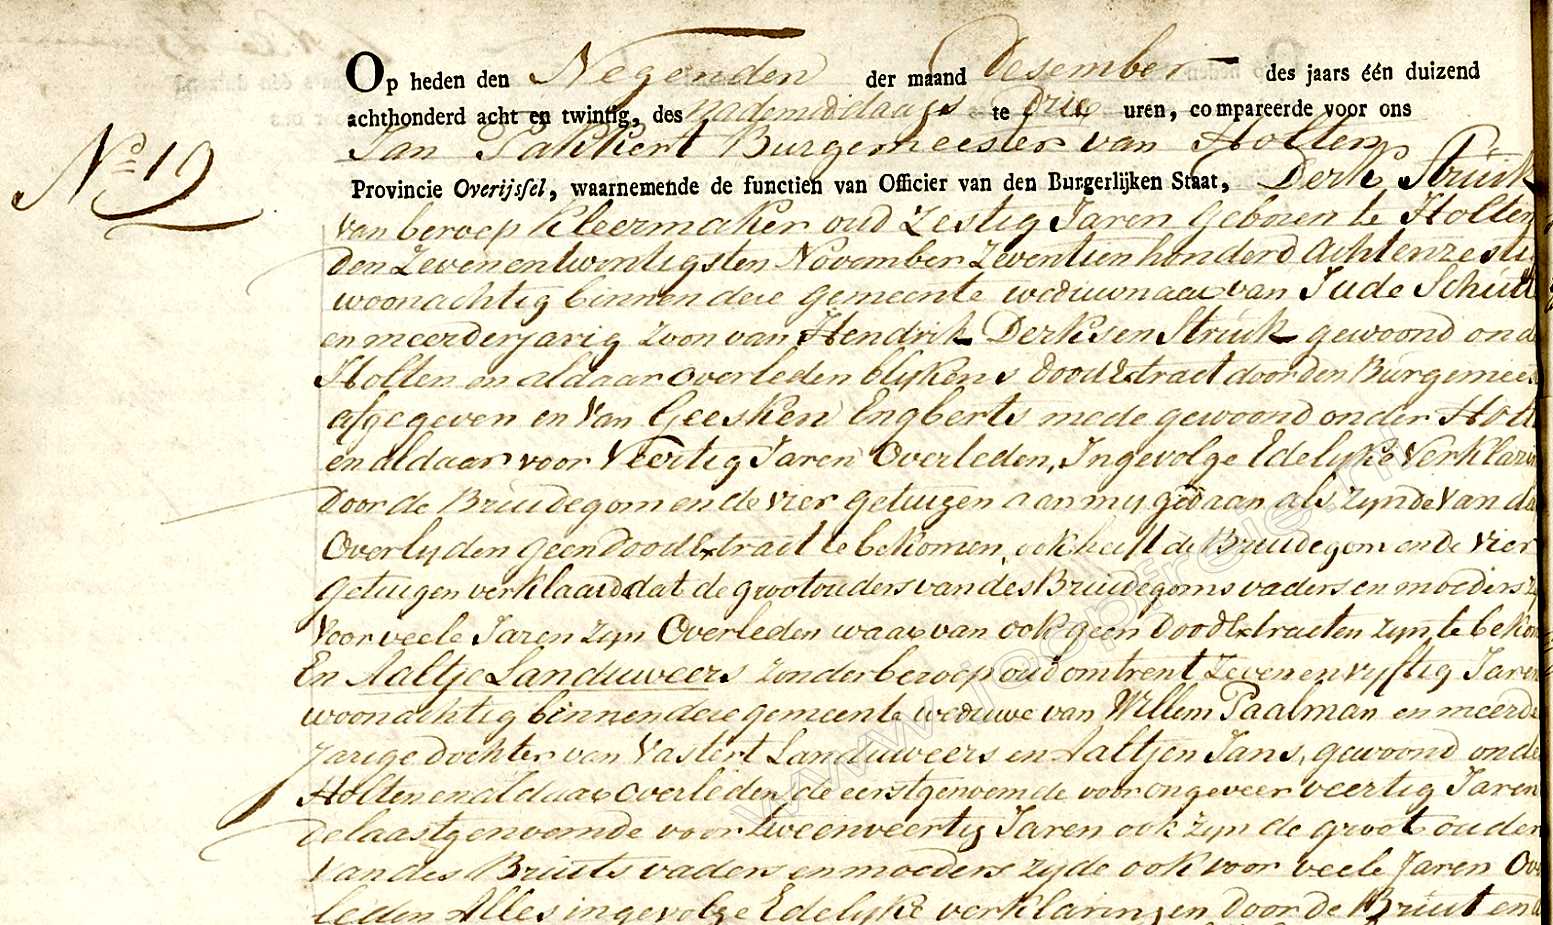 Op heden den Negenden der maand Desember des jaars één duizend
achthonderd acht en twintig, des nademiddaags te Drie uren, compareerde voor ons
Jan Pakkert Burgemeester van Holten
Provincie Overijssel, waarnemende de functien van Officier van den Burgerlijken Staat, Derk Struik
No 19
van beroep Kleermaker oud Zestig Jaren Geboren te Holten
den Zevenentwintigsten November Zeventien honderd Achtenzesti
woonachtig binnen dese Gemeente weduwnaar van Jude Schutt
en meerderjarig zoon van Hendrik Derksen Struik gewoond ond
Holten en aldaar overleden blykens Dood Extract door den Burgemees
afgegeven en Van Geesken Engberts mede gewoond onder Holt
en aldaar voor Veertig Jaren Overleden, Ingevolge Edelyke Verklarin
door de Bruidegom en de vier getuigen aan my gedaan als zynde van da
Overlyden geen Dood Extract te bekomen, ook heeft de Bruidegom en de vier
Getuigen verklaard dat de grootouders van des Bruidegoms vaders en moeders z
Voor veele Jaren zyn Overleden waarvan ook geen Dood Extracten zyn te beko
En Aaltje Landuweers zonder beroep oud omtrent Zeven en vyftig Jaren
woonachtig binnen dese gemeente weduwe van Willem Paalman en meerde
jarige dochter van Vastert Landuweers en Aaltjen Jans, gewoond onde
Holten en aldaar overleden, de eerstgenoemde voor ongeveer veertig Jaren
de laastgenoemde voor tweenveertig Jaren ook zyn de groot ouder
van des Bruits vaders en moeders zyde ook voor veele Jaren Ov
leden Alles ingevolge Edelyke verklaringen door de Bruit en d
www.jaapfries.nl